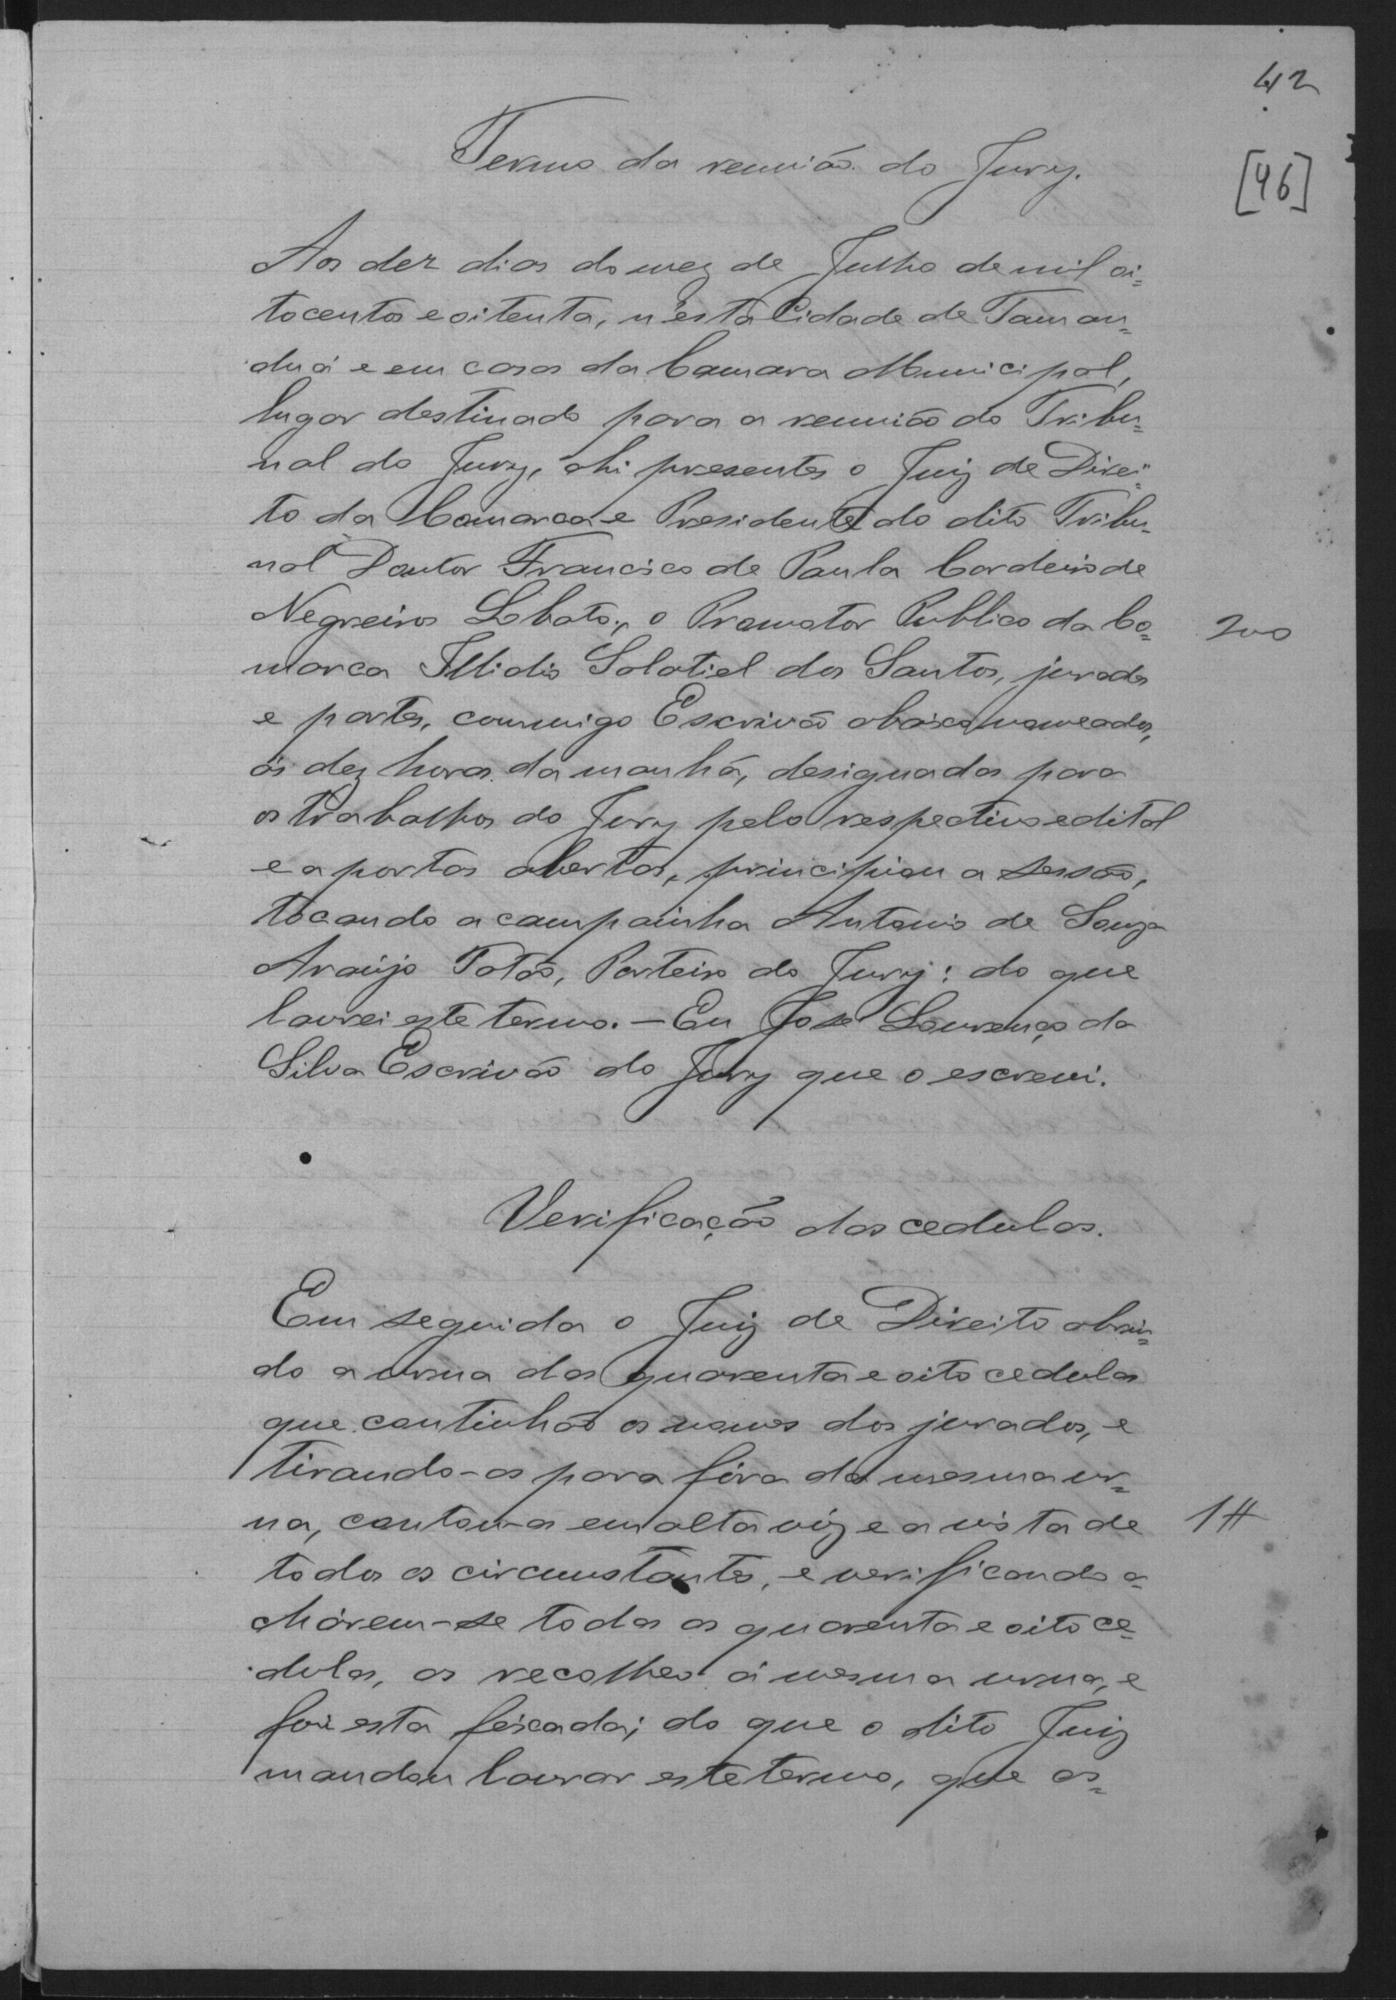 42
[46]
Termo da reunião do Jury.
Aos dez dias do mez de Julho de mil oi=
tocentos e oitenta, n'esta Cidade de Taman=
duá e em casa da Camara Municipal,
lugar destinado para a reunião do Tribu=
nal do Jury, ahi presentes o Juiz de Direi=
to da Comarca e Presidente do dito Tribu=
nal Doutor Francisco de Paula Cordeiro de
Negreiros Lobato, o Promotor Publico da Co=
200
marca Illidio Salatiel dos Santos, jurados
e partes, commigo Escrivão abaixo nomeados,
ás dez horas da manhã, designadas para
os trabalhos do Jury pelo respectivo edital
e a portas abertas, principiou a sessão,
tocando a campainha Antonio de Souza
Araújo Totas, Porteiro do Jury: do que
lavrei este termo. — Eu José Lourenço da
Silva Escrivão do Jury que o escrevi.
Verificação das cedulas.
Em seguida o Juiz de Direito abrin=
do a urna das quarenta e oito cedulas
que continhão os nomes dos jurados, e
tirando-as para fóra da mesma ur=
na, contou-a em alta vóz e a vista de
1#
todos os circumstantes, e verificando a=
chárem-se todas as quarenta e oito ce=
dulas, as recolheo á mesma urna, e
foi esta féxada; do que o dito Juiz
mandou lavrar este termo, que as=